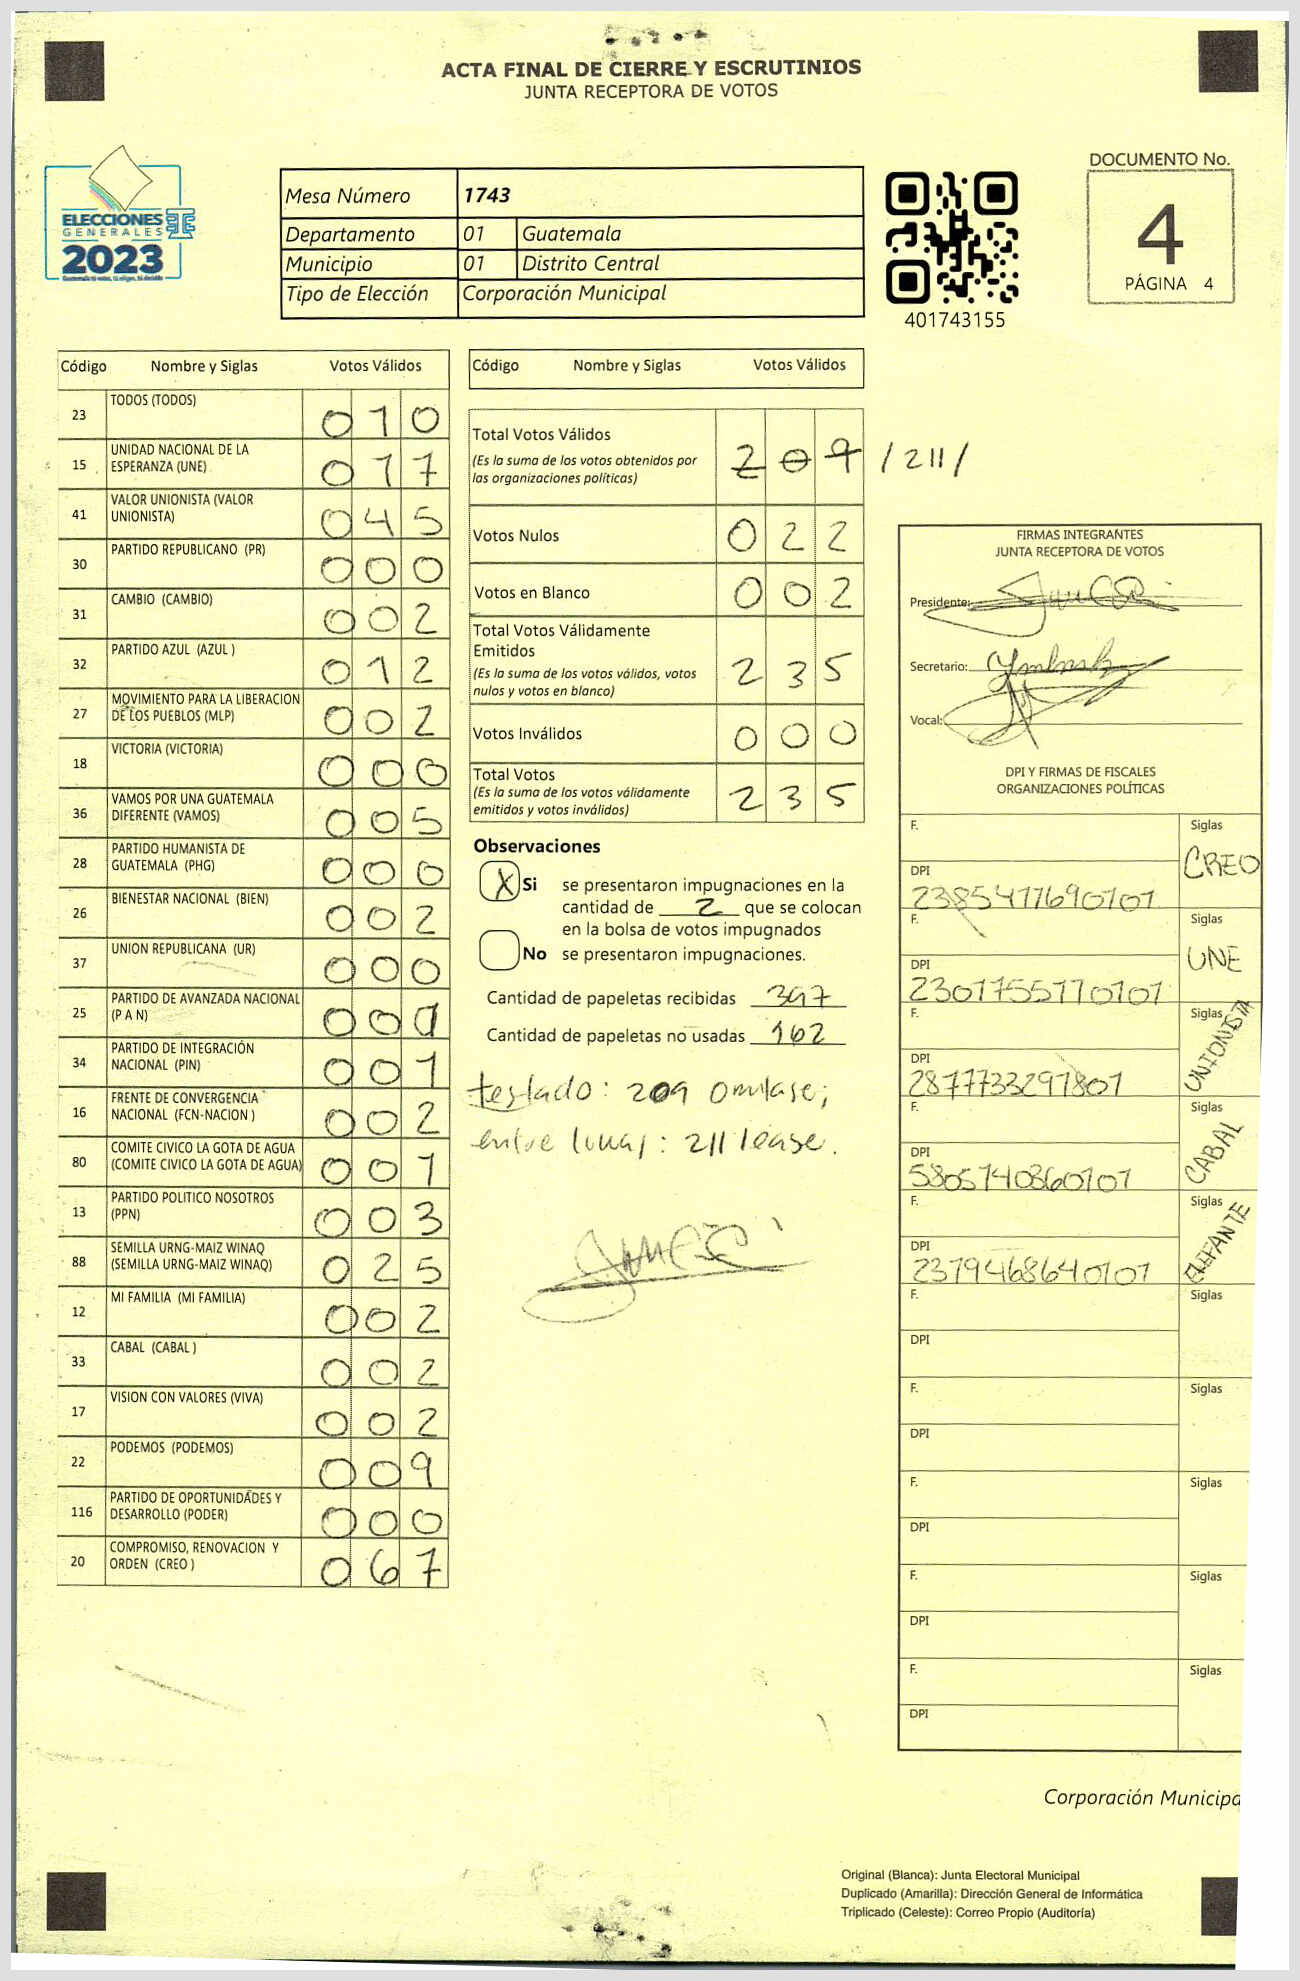 ACTA FINAL DE CIERRE Y ESCRUTINIOS
JUNTA RECEPTORA DE VOTOS
ELECCIONES
GENERALES
2023
Mesa Número 1743
Departamento 01 Guatemala
Municipio 01 Distrito Central
Tipo de Elección Corporación Municipal
401743155
DOCUMENTO No.
4
PÁGINA 4
Código Nombre y Siglas Votos Válidos
23 TODOS (TODOS) 0 1 0
15 UNIDAD NACIONAL DE LA
ESPERANZA (UNE) 0 1 7
41 VALOR UNIONISTA (VALOR
UNIONISTA) 0 4 5
30 PARTIDO REPUBLICANO (PR) 0 0 0
31 CAMBIO (CAMBIO) 0 0 2
32 PARTIDO AZUL (AZUL ) 0 1 2
27 MOVIMIENTO PARA LA LIBERACION
DE LOS PUEBLOS (MLP) 0 0 2
18 VICTORIA (VICTORIA) 0 0 0
36 VAMOS POR UNA GUATEMALA
DIFERENTE (VAMOS) 0 0 5
28 PARTIDO HUMANISTA DE
GUATEMALA (PHG) 0 0 0
26 BIENESTAR NACIONAL (BIEN) 0 0 2
37 UNION REPUBLICANA (UR) 0 0 0
25 PARTIDO DE AVANZADA NACIONAL
(P A N) 0 0 1
34 PARTIDO DE INTEGRACIÓN
NACIONAL (PIN) 0 0 1
16 FRENTE DE CONVERGENCIA
NACIONAL (FCN-NACION ) 0 0 2
80 COMITE CIVICO LA GOTA DE AGUA
(COMITE CIVICO LA GOTA DE AGUA) 0 0 1
13 PARTIDO POLITICO NOSOTROS
(PPN) 0 0 3
88 SEMILLA URNG-MAIZ WINAQ
(SEMILLA URNG-MAIZ WINAQ) 0 2 5
12 MI FAMILIA (MI FAMILIA) 0 0 2
33 CABAL (CABAL ) 0 0 2
17 VISION CON VALORES (VIVA) 0 0 2
22 PODEMOS (PODEMOS) 0 0 9
116 PARTIDO DE OPORTUNIDADES Y
DESARROLLO (PODER) 0 0 0
20 COMPROMISO, RENOVACION Y
ORDEN (CREO ) 0 6 7
Código Nombre y Siglas Votos Válidos
Total Votos Válidos
(Es la suma de los votos obtenidos por
las organizaciones políticas) 2 0 9 /211/
Votos Nulos 0 2 2
Votos en Blanco 0 0 2
Total Votos Válidamente
Emitidos
(Es la suma de los votos válidos, votos
nulos y votos en blanco) 2 3 5
Votos Inválidos 0 0 0
Total Votos
(Es la suma de los votos válidamente
emitidos y votos inválidos) 2 3 5
Observaciones
X Si se presentaron impugnaciones en la
cantidad de 2 que se colocan
en la bolsa de votos impugnados
No se presentaron impugnaciones.
Cantidad de papeletas recibidas 397
Cantidad de papeletas no usadas 162
testado: 209 omitase;
entre lineas: 211 lease.
FIRMAS INTEGRANTES
JUNTA RECEPTORA DE VOTOS
Presidente:
Secretario:
Vocal:
DPI Y FIRMAS DE FISCALES
ORGANIZACIONES POLÍTICAS
F. Siglas
CREO
DPI
2385477690101
F. Siglas
UNE
DPI
2301755770101
F. Siglas
UNIONISTA
DPI
2877733291801
F. Siglas
CABAL
DPI
5805740860101
F. Siglas
ELEFANTE
DPI
2379468640101
F. Siglas
DPI
F. Siglas
DPI
F. Siglas
DPI
F. Siglas
DPI
F. Siglas
DPI
Corporación Municipa
Original (Blanca): Junta Electoral Municipal
Duplicado (Amarilla): Dirección General de Informática
Triplicado (Celeste): Correo Propio (Auditoría)